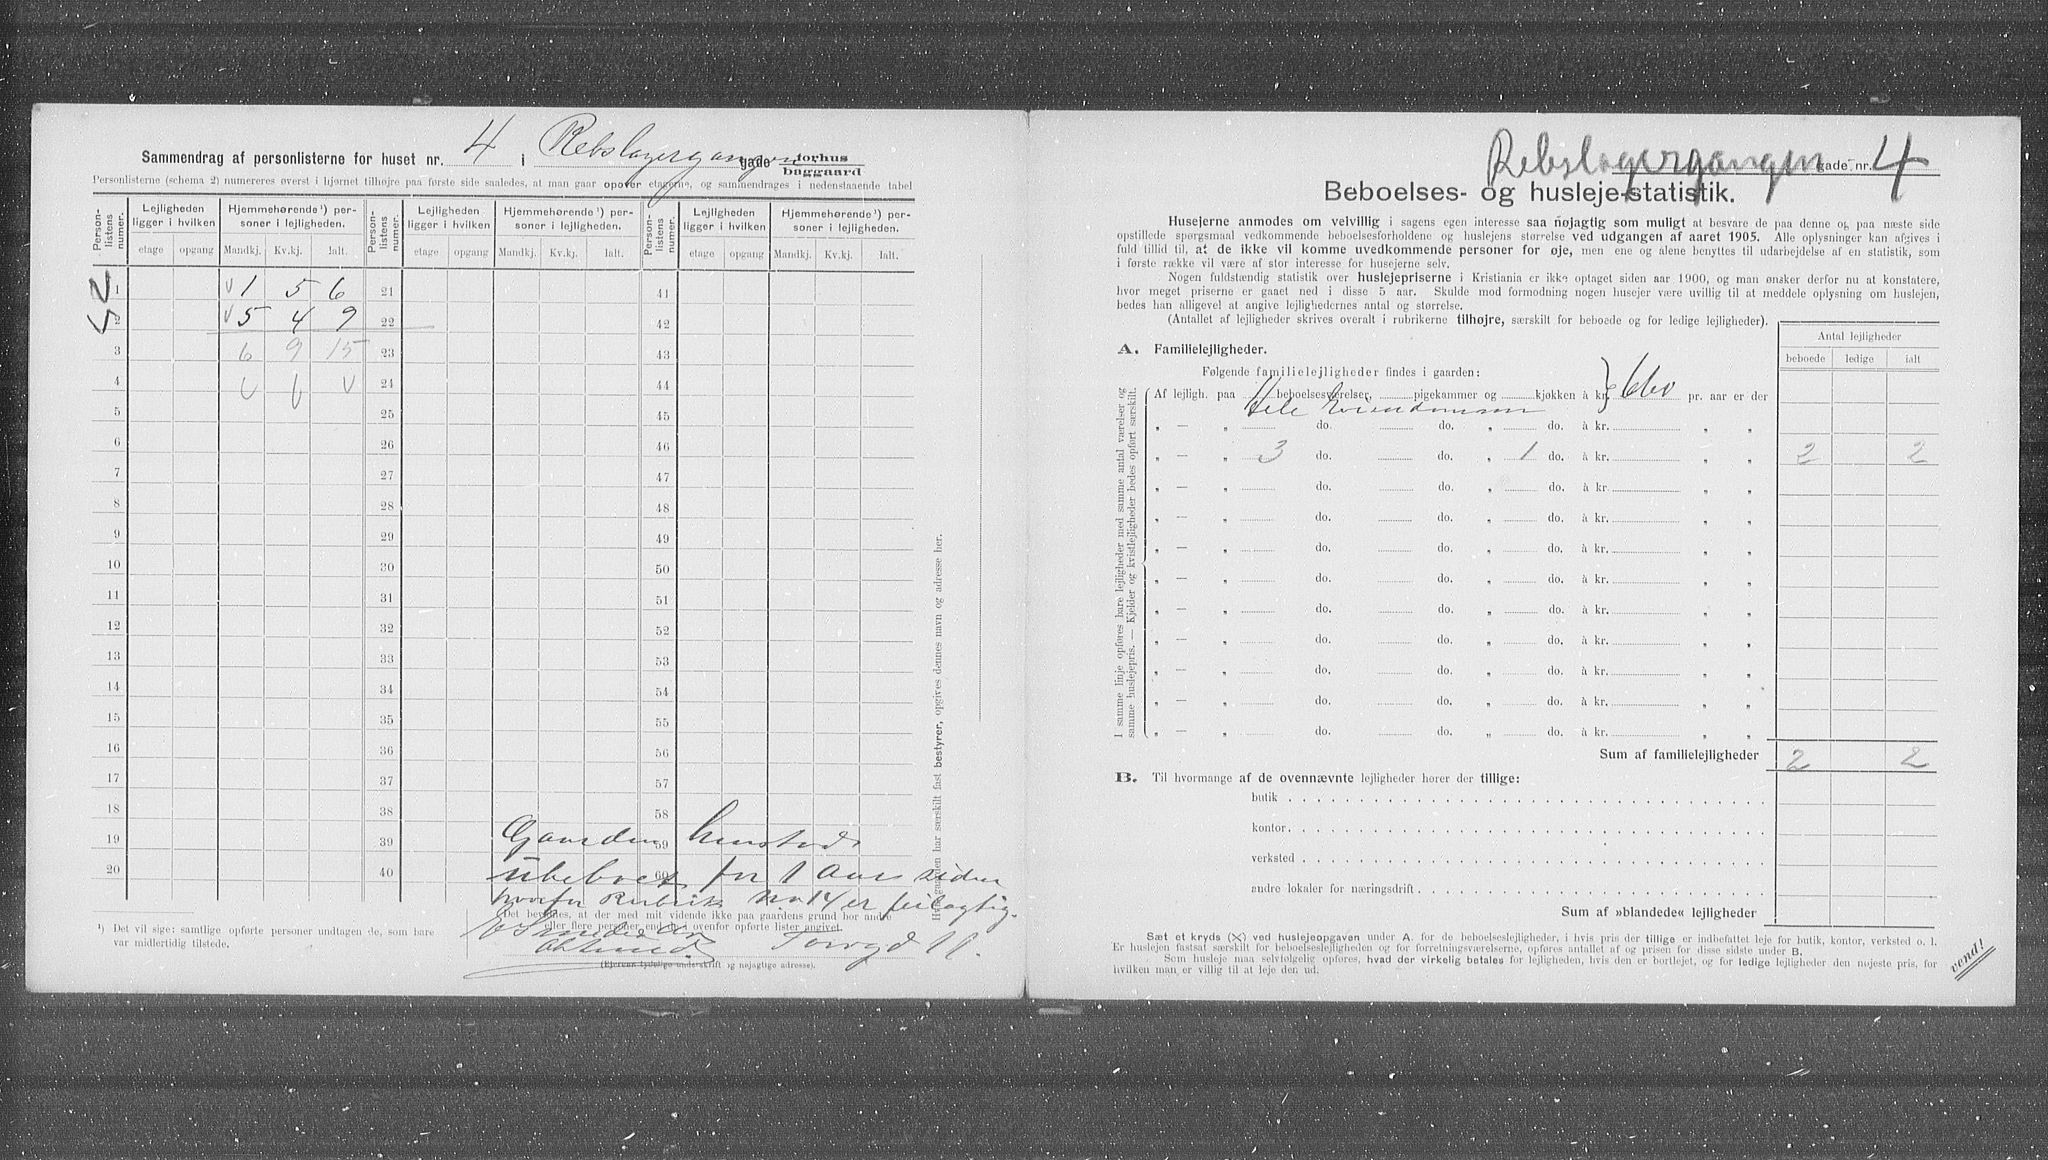 Sammendrag af personlisterne for huset nr. 4 i Rebslagergangen gade forhus baggaard
Personlisterne (schema 2) numereres øverst i hjørnet tilhøjre paa første side saaledes, at man gaar opover etagerne, og sammendrages i nedenstaaende tabel
Person-listens numer. Lejligheden ligger i hvilken Hjemmehørende¹) personer i lejligheden. Person-listens numer. Lejligheden ligger i hvilken Hjemmehørende¹) personer i lejligheden. Person-listens numer. Lejligheden ligger i hvilken Hjemmehørende¹) personer i lejligheden.
etage opgang Mandkj. Kv.kj. Ialt. etage opgang Mandkj. Kv.kj. Ialt. etage opgang Mandkj. Kv.kj. Ialt.
52
1 v 1 5 6 21 41
2 v 5 4 9 22 42
3 6 9 15 23 43
4 v v v 24 44
5 25 45
6 26 46
7 27 47
8 28 48
9 29 49
10 30 50
11 31 51
12 32 52
13 33 53
14 34 54
15 35 55
16 36 56
17 37 57
18 38 58
19 39 59
20 40 60
Gaarden henstod
ubeboet for 1 Aar siden
hvorfor Rubrik No 14 er feilagtig.
Det bevidnes, at der med mit vidende ikke paa gaardens grund bor andre
eller flere personer, end i ovenfor opførte lister angivet.
Torvgd 11.
(Ejerens tydelige underskrift og nøjagtige adresse).
¹) Det vil sige: samtlige opførte personer undtagen de, som bare
var midlertidig tilstede.
Hvis gaarden har særskilt fast bestyrer, opgives dennes navn og adresse her.
Rebslagergangen gade nr. 4
Beboelses- og husleje-statistik.
Husejerne anmodes om velvillig i sagens egen interesse saa nøjagtig som muligt at besvare de paa denne og paa næste side
opstillede spørgsmaal vedkommende beboelsesforholdene og huslejens størrelse ved udgangen af aaret 1905. Alle oplysninger kan afgives i
fuld tillid til, at de ikke vil komme uvedkommende personer for øje, men ene og alene benyttes til udarbejdelse af en statistik, som
i første række vil være af stor interesse for husejerne selv.
Nogen fuldstændig statistik over huslejepriserne i Kristiania er ikke optaget siden aar 1900, og man ønsker derfor nu at konstatere,
hvor meget priserne er gaaet ned i disse 5 aar. Skulde mod formodning nogen husejer være uvillig til at meddele oplysning om huslejen,
bedes han alligevel at angive lejlighedernes antal og størrelse.
(Antallet af lejligheder skrives overalt i rubrikerne tilhøjre, særskilt for beboede og for ledige lejligheder).
Antal lejligheder
beboede ledige ialt
A. Familielejligheder.
Følgende familielejligheder findes i gaarden:
I samme linje opføres bare lejligheder med samme antal værelser og
samme huslejepris. — Kjelder og kvistlejligheder bedes opført særskilt.
Af lejligh. paa beboelsesværelser, pigekammer og kjøkken à kr. 660 pr. aar er der
Hele Eiendommen
„ — „ do. do. „ do. à kr. „ „
„ — „ 3 do. do. „ 1 do. à kr. „ „ 2 2
„ — „ do. do. „ do. à kr. „ „
„ — „ do. do. „ do. à kr. „ „
„ — „ do. do. „ do. à kr. „ „
„ — „ do. do. „ do. à kr. „ „
„ — „ do. do. „ do. à kr. „ „
„ — „ do. do. „ do. à kr. „ „
„ — „ do. do. „ do. à kr. „ „
„ — „ do. do. „ do. à kr. „ „
„ — „ do. do. „ do. à kr. „ „
Sum af familielejligheder 2 2
B. Til hvormange af de ovennævnte lejligheder hører der tillige:
butik
kontor
verksted
andre lokaler for næringsdrift
Sum af »blandede« lejligheder
Sæt et kryds (×) ved huslejeopgaven under A. for de beboelseslejligheder, i hvis pris der tillige er indbefattet leje for butik, kontor, verksted o. l.
Er huslejen fastsat særskilt for beboelseslejligheden og for forretningsværelserne, opføres antallet af og prisen for disse sidste under B.
Som husleje maa selvfølgelig opføres, hvad der virkelig betales for lejligheden, hvis den er bortlejet, og for ledige lejligheder den nøjeste pris, for
hvilken man er villig til at leje den ud.
vend!